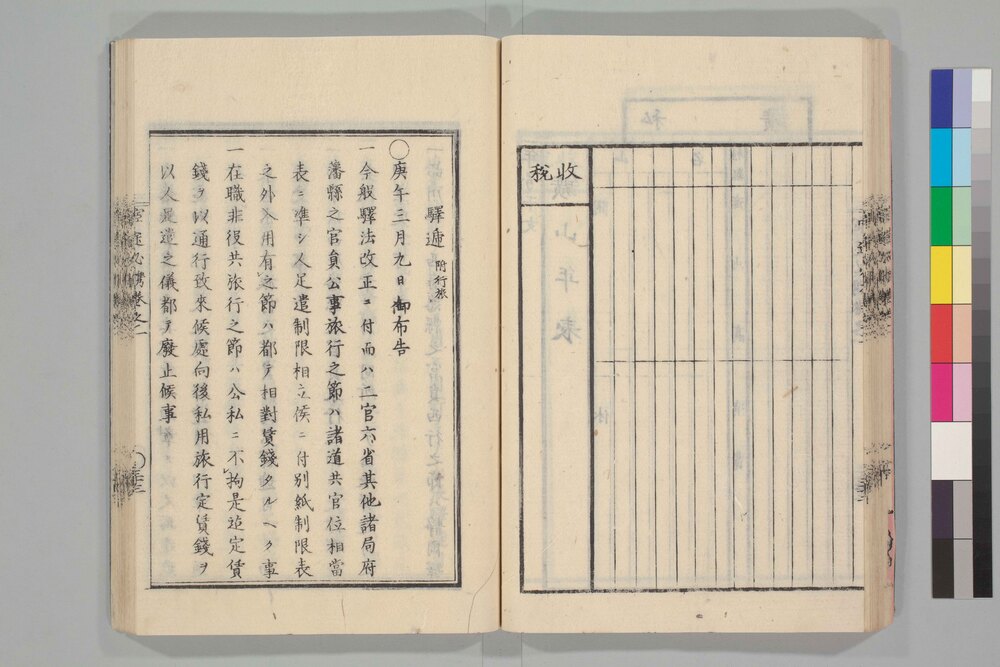 収税
驛遞 附行旅
○庚午三月九日御布告
一今般驛法改正ニ付而ハ二官六省其他諸局府
藩縣之官員公事旅行之節ハ諸道共官位相當
表ニ準シ人足遣制限相立候ニ付別紙制限表
之外入用有之節ハ都テ相對賃錢タルヘク事
一在職非役共旅行之節ハ公私ニ不拘是迠定賃
錢ヲ以通行致來候處向後私用旅行定賃錢ヲ
以人足遣之儀都テ廢止候事